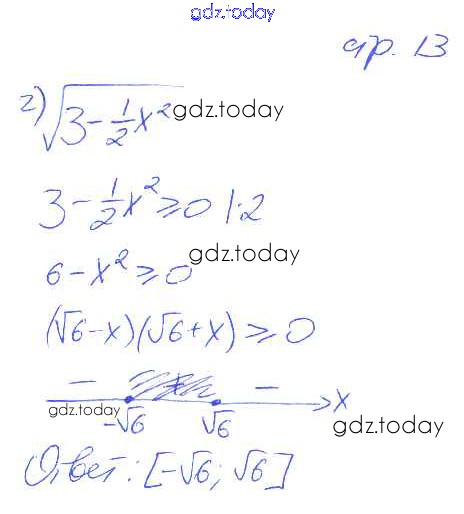 gdz.today
стр. 13
г) √(3 - 1/2 x²) gdz.today
3 - 1/2 x² ≥ 0 | · 2
6 - x² ≥ 0 gdz.today
(√6 - x)(√6 + x) ≥ 0
− + − x
gdz.today -√6 √6 gdz.today
Ответ: [-√6; √6]